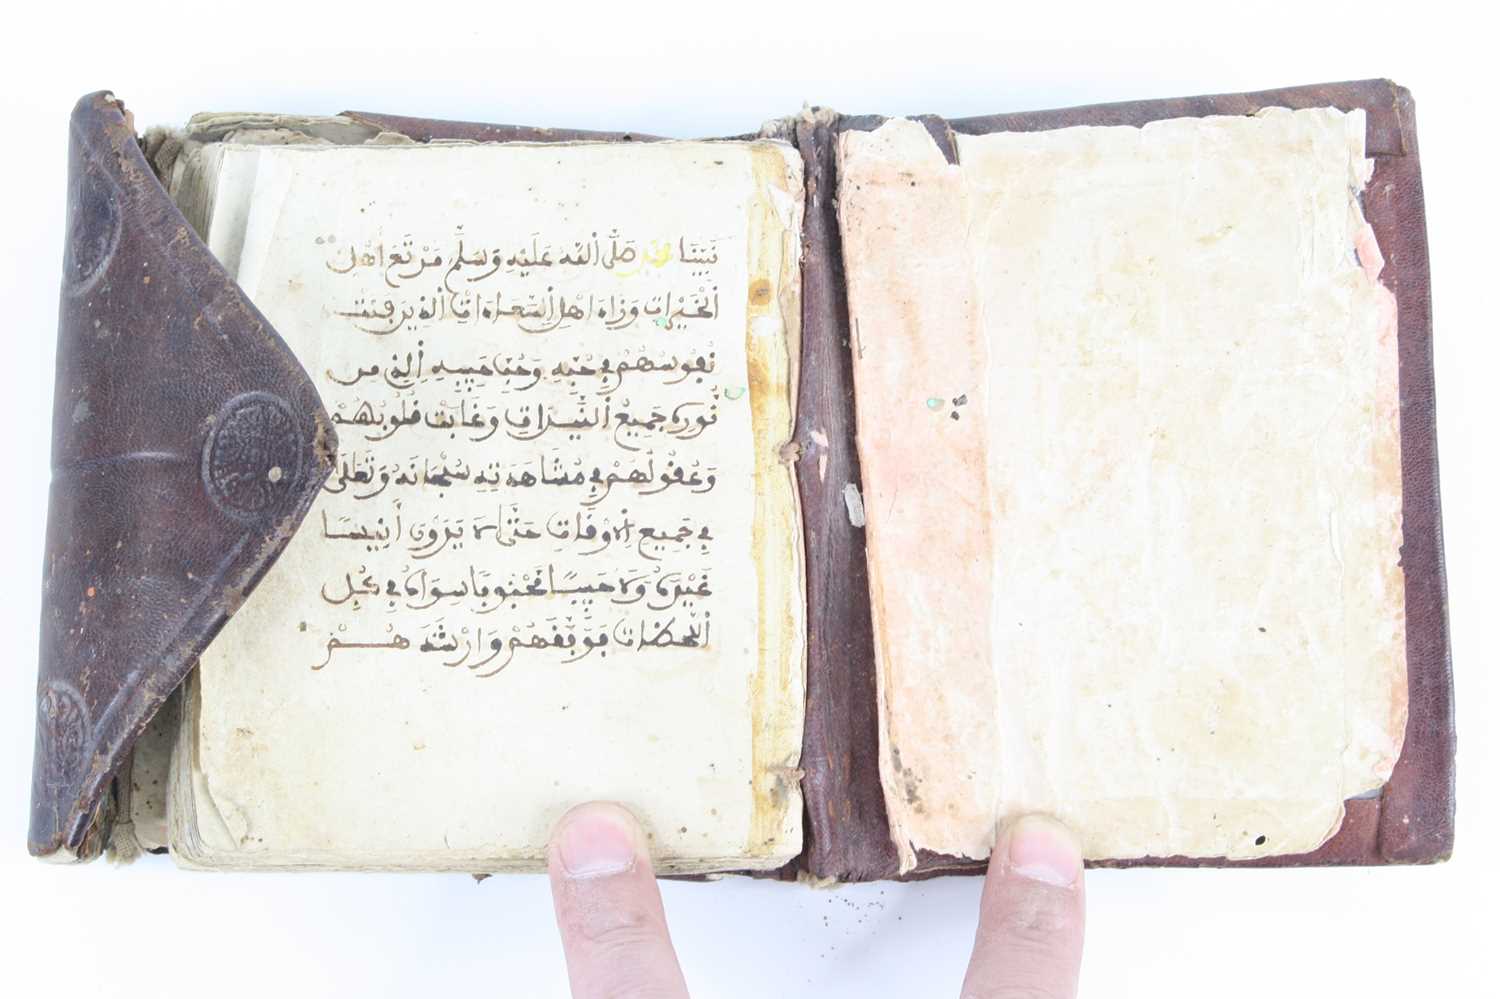 نَبِيِّنَا مُحَمَّدٍ صَلَّى اللَّهُ عَلَيْهِ وَسَلَّمَ مَرْتَعَ أَهْلِ
الْخَيْرَاتِ وَزَادَ أَهْلِ السَّعَادَاتِ الذِينَ فَنِيَتْ
نُفُوسُهُمْ فِي حُبِّهِ وَحُبِّ حَبِيبِهِ الذِي مِن
نُورِهِ جَمِيعُ النَّيِّرَاتِ وَغَابَتْ قُلُوبُهُمْ
وَعُقُولُهُمْ فِي مُشَاهَدَتِهِ سُبْحَانَهُ وَتَعَالَى
فِي جَمِيعِ الأَوْقَاتِ حَتَّى لاَ يَرَوْنَ أَنِيسًا
غَيْرَهُ وَلاَ حَبِيبًا مَحْبُوبًا سِوَاهُ فِي كُلِّ
اللَّحَظَاتِ فَوَفَّقَهُمْ وَأَرْشَدَهُمْ